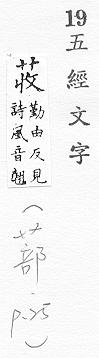 19 五經文字
荍
勤由反見
詩風音翹
(艹部 p.25)